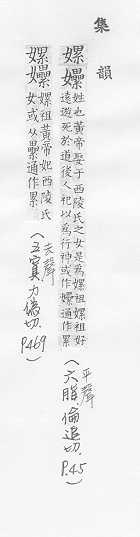 集韻
嫘𡣍 姓也黃帝娶于西陵氏之女是為嫘祖嫘祖好
遠遊死於道後人祀以為行神或作㜼通作累
(平聲
六脂，倫追切.
P.45)
嫘㜼 嫘祖黃帝妃西陵氏
女或从纍通作累
(去聲
五寘力偽切.
P469)